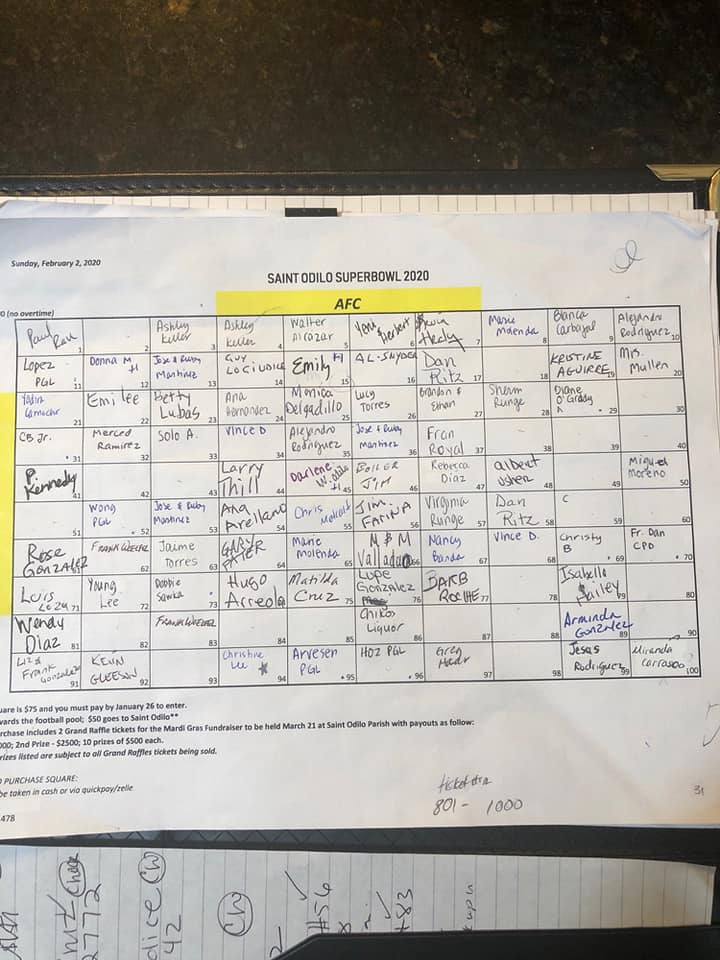 Sunday, February 2, 2020
SAINT ODILO SUPERBOWL 2020
AFC
0 (no overtime)
Paul 1
2
Ashley Keller 3
Ashley Keller 4
Walter Alcazar 5
Yeni Herbert 6
Kevin Healy 7
Marie Molenda 8
Bianca Carbajal 9
Alejandro Rodriguez 10
Lopez PGL 11
Donna M 12
Jose & Ruby Martinez 13
Guy LoGiudice 14
Emily 15
AL-SNYDER 16
Dan Ritz 17
18
KRISTINE AGUIRRE 19
Mrs. Mullen 20
Yadira Camacho 21
Emi lee 22
Betty Lubas 23
Ana Hernandez 24
Monica Delgadillo 25
Lucy Torres 26
Brandon & Ethan 27
Sherm Runge 28
Diane O'Grady 29
30
CB Jr. 31
Merced Ramirez 32
Solo A. 33
Vince D 34
Alejandro Rodriguez 35
Jose & Ruby Martinez 36
Fran Royal 37
38
39
40
P. Kennedy 41
42
43
Larry Thill 44
Darlene 45
BOILER JIM 46
Rebecca Diaz 47
albert 48
49
Miguel Moreno 50
51
Wong PGL 52
Jose & Ruby Martinez 53
Ana Arellano 54
Chris 55
Jim FARINA 56
Virginia Runge 57
Dan Ritz 58
C 59
60
Rose GONZALEZ 61
FRANK 62
Jaume Torres 63
GARY 64
Marie Molenda 65
M & M Valladares 66
Nancy Banda 67
Vince D. 68
Christy B 69
Fr. Dan CPD 70
Luis 71
Young Lee 72
Debbie Sawka 73
Hugo Arreola 74
Matilda Cruz 75
Lupe Gonzalez 76
BARB ROCHE 77
78
Isabella Hailey 79
80
Wendy Diaz 81
82
FRANK 83
84
85
Chikos Liquor 86
87
88
Arminda Gonzalez 89
90
Liz & Frank Gonzalez 91
KEVIN GLEESON 92
93
Christine Lee 94
Arvesen PGL 95
HOZ PGL 96
Greg 97
98
Jesus Rodriguez 99
Miranda Carrasco 100
uare is $75 and you must pay by January 26 to enter.
wards the football pool; $50 goes to Saint Odilo**
rchase includes 2 Grand Raffle tickets for the Mardi Gras Fundraiser to be held March 21 at Saint Odilo Parish with payouts as follow:
000; 2nd Prize - $2500; 10 prizes of $500 each.
rizes listed are subject to all Grand Raffles tickets being sold.
O PURCHASE SQUARE:
be taken in cash or via quickpay/zelle
478
801 - 1000
31
2772
dice CW
42
CW
#56
#83